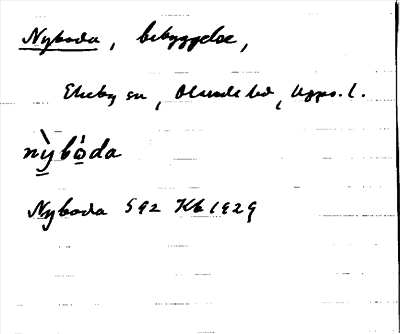 Nyboda, bebyggelse,
Ekeby sn, Olands hd, Upps. l.
nỳbóda
Nyboda S 92 Kb 1929